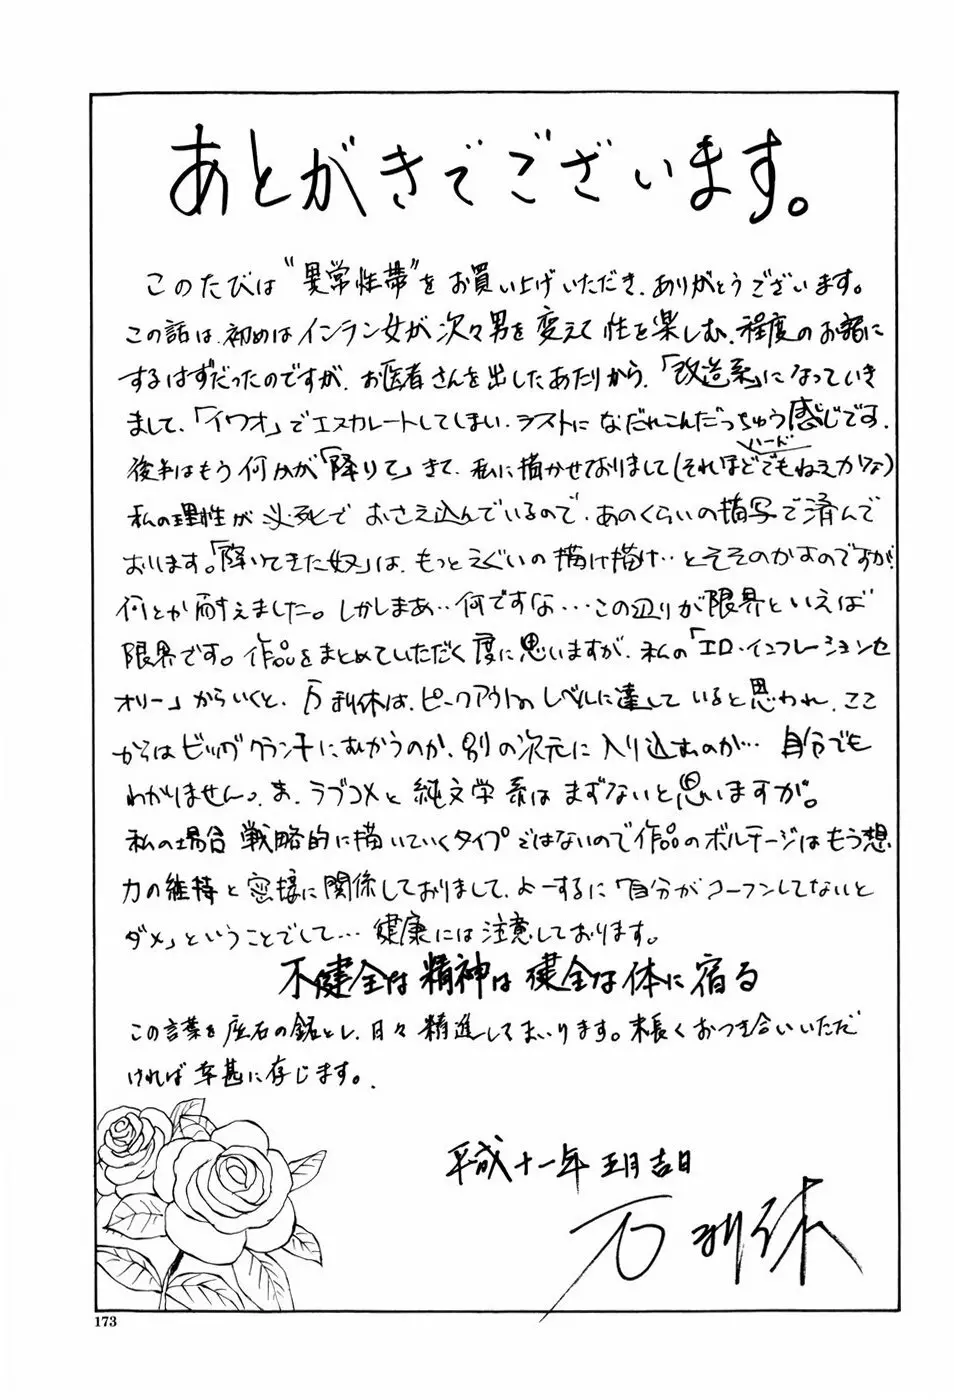 あとがきでございます。
このたびは“異常性帯”をお買い上げいただき、ありがとうございます。
この話は、初めはインラン女が次々男を変えて性を楽しむ、程度のお話に
するはずだったのですが、お医者さんを出したあたりから、「改造系」になっていき
まして、「イワオ」でエスカレートしてしまい、ラストになだれこんだっちゅう感じです。
後半はもう何かが「降りて」きて、私に描かせておりまして(それほどハードでもねえかな)
私の理性が必死でおさえ込んでいるので、あのくらいの描写で済んで
おります。「降りてきた奴」は、もっとえぐいの描け描け‥とそそのかすのですが、
何とか耐えました。しかしまあ‥何ですな…この辺りが限界といえば
限界です。作品をまとめていただく度に思いますが、私の「エロ・インフレーションセ
オリー」からいくと、万利休は、ピークアウトのレベルに達していると思われ、ここ
からはビッグクランチにむかうのか、別の次元に入り込むのか… 自分でも
わかりません。ま、ラブコメと純文学系はまずないと思いますが。
私の場合 戦略的に描いていくタイプではないので作品のボルテージはもう想
力の維持と密接に関係しておりまして、よーするに「自分がコーフンしてないと
ダメ」ということでして… 健康には注意しております。
不健全な精神は健全な体に宿る
この言葉を座右の銘とし、日々精進してまいります。末長くおつき合いいただ
ければ幸甚に存じます。
平成十一年 五月吉日
万利休
173